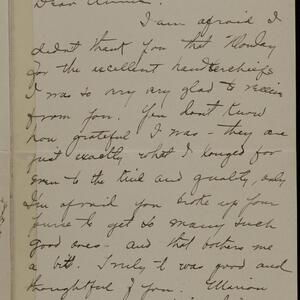 Dear
I am afraid I
didn't thank you that Monday
for the excellent handkerchiefs
I was so very very glad to receive
from you. You don't know
how grateful I was - they are
just exactly what I longed for
even to the kind and quality, only
I'm afraid you broke up your
purse to get so many such
good ones - and that bothers me
a bit. Truly it was good and
thoughtful of you. Marion